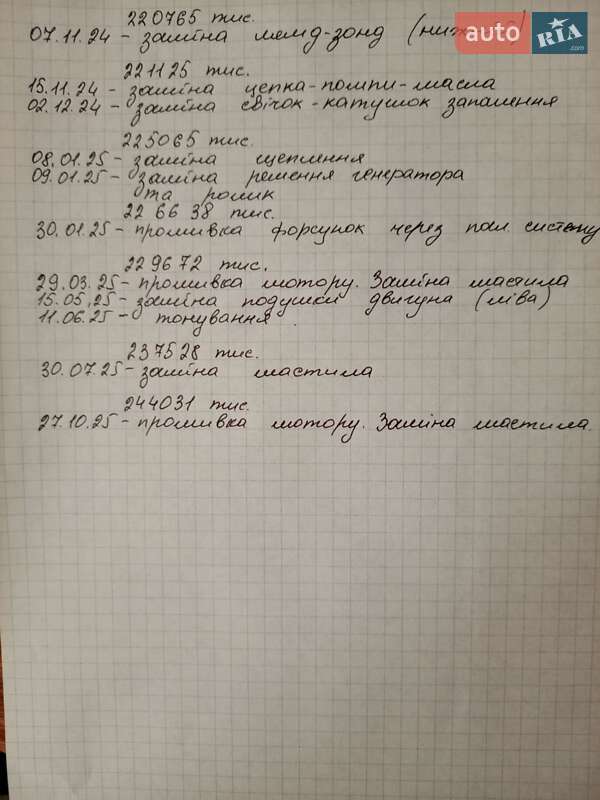 220765 тис.
07.11.24 - заміна лемд-зонд (
auto RIA .com
221125 тис.
15.11.24 - заміна цепка-помпи-масла
02.12.24 - заміна свічок-катушок запалення
225065 тис.
08.01.25 - заміна щеплення
09.01.25 - заміна ремення генератора
та ролик
22 66 38 тис.
30.01.25 - промивка форсунок через пал. систему
229672 тис.
29.03.25 - промивка мотору. Заміна мастила
15.05.25 - заміна подушки двигуна (ліва)
11.06.25 - тонування
237528 тис.
30.07.25 - заміна мастила
244031 тис.
27.10.25 - промивка мотору. Заміна мастила.